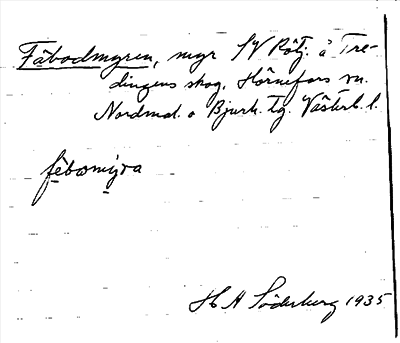 Fäbodmyren, myr SV Rötj. å Tre-
dingens skog, Hörnefors sn.
Nordmal. o Bjurh. tg. Västerb. l.
fèbomỳra
H A Söderberg 1935